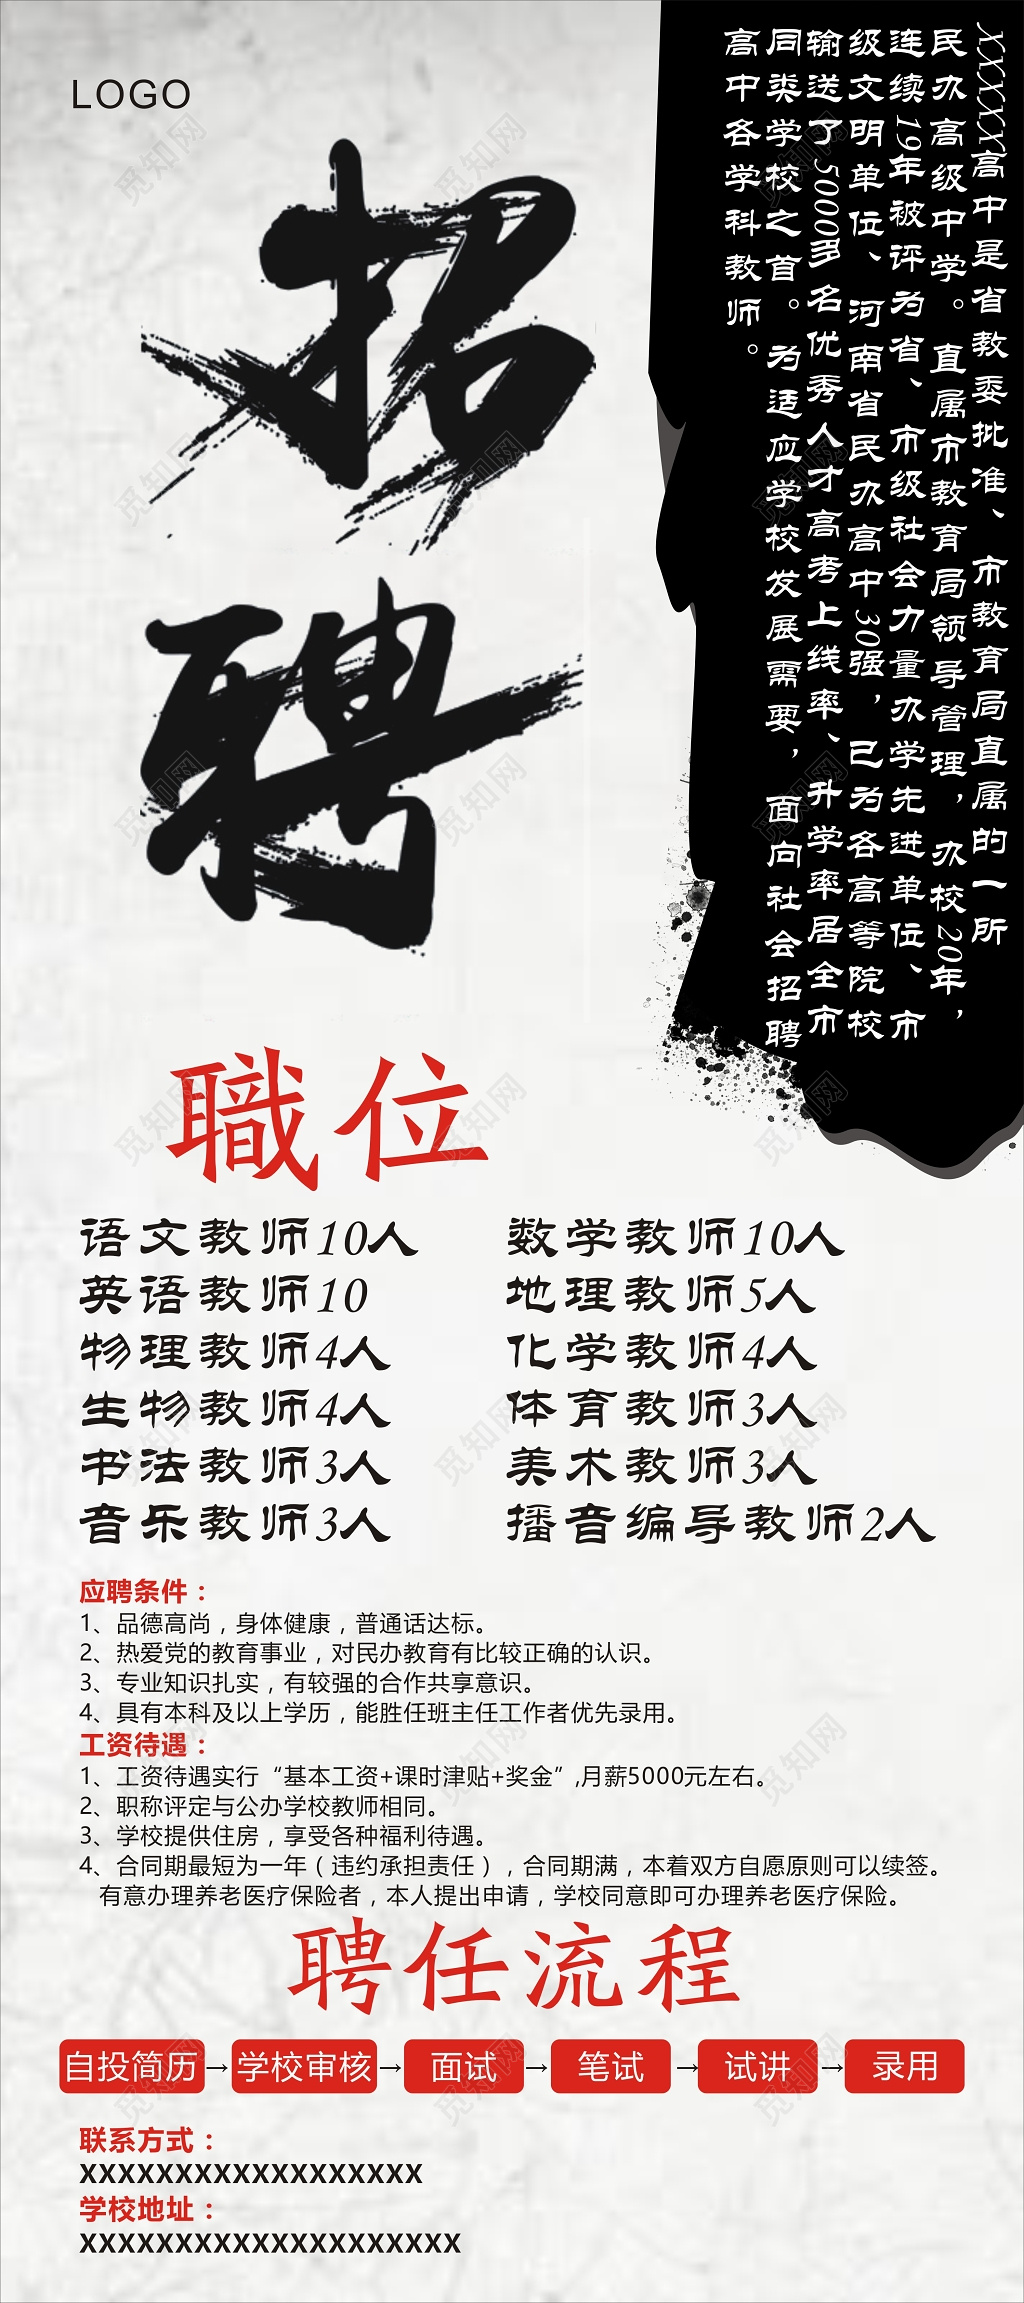 LOGO
招
聘
XXXXX高中是省教委批准、市教育局直属的一所
民办高级中学。直属市教育局领导管理，办校20年，
连续19年被评为省、市级社会力量办学先进单位、市
级文明单位、河南省民办高中30强，已为各高等院校
输送了5000多名优秀人才高考上线率、升学率居全市
同类学校之首。为适应学校发展需要，面向社会招聘
高中各学科教师。
職位
语文教师10人
数学教师10人
英语教师10
地理教师5人
物理教师4人
化学教师4人
生物教师4人
体育教师3人
书法教师3人
美术教师3人
音乐教师3人
播音编导教师2人
应聘条件：
1、品德高尚，身体健康，普通话达标。
2、热爱党的教育事业，对民办教育有比较正确的认识。
3、专业知识扎实，有较强的合作共享意识。
4、具有本科及以上学历，能胜任班主任工作者优先录用。
工资待遇：
1、工资待遇实行“基本工资+课时津贴+奖金”,月薪5000元左右。
2、职称评定与公办学校教师相同。
3、学校提供住房，享受各种福利待遇。
4、合同期最短为一年（违约承担责任），合同期满，本着双方自愿原则可以续签。
有意办理养老医疗保险者，本人提出申请，学校同意即可办理养老医疗保险。
聘任流程
自投简历→学校审核→面试→笔试→试讲→录用
联系方式：
XXXXXXXXXXXXXXXXXX
学校地址：
XXXXXXXXXXXXXXXXXXXX
觅知网